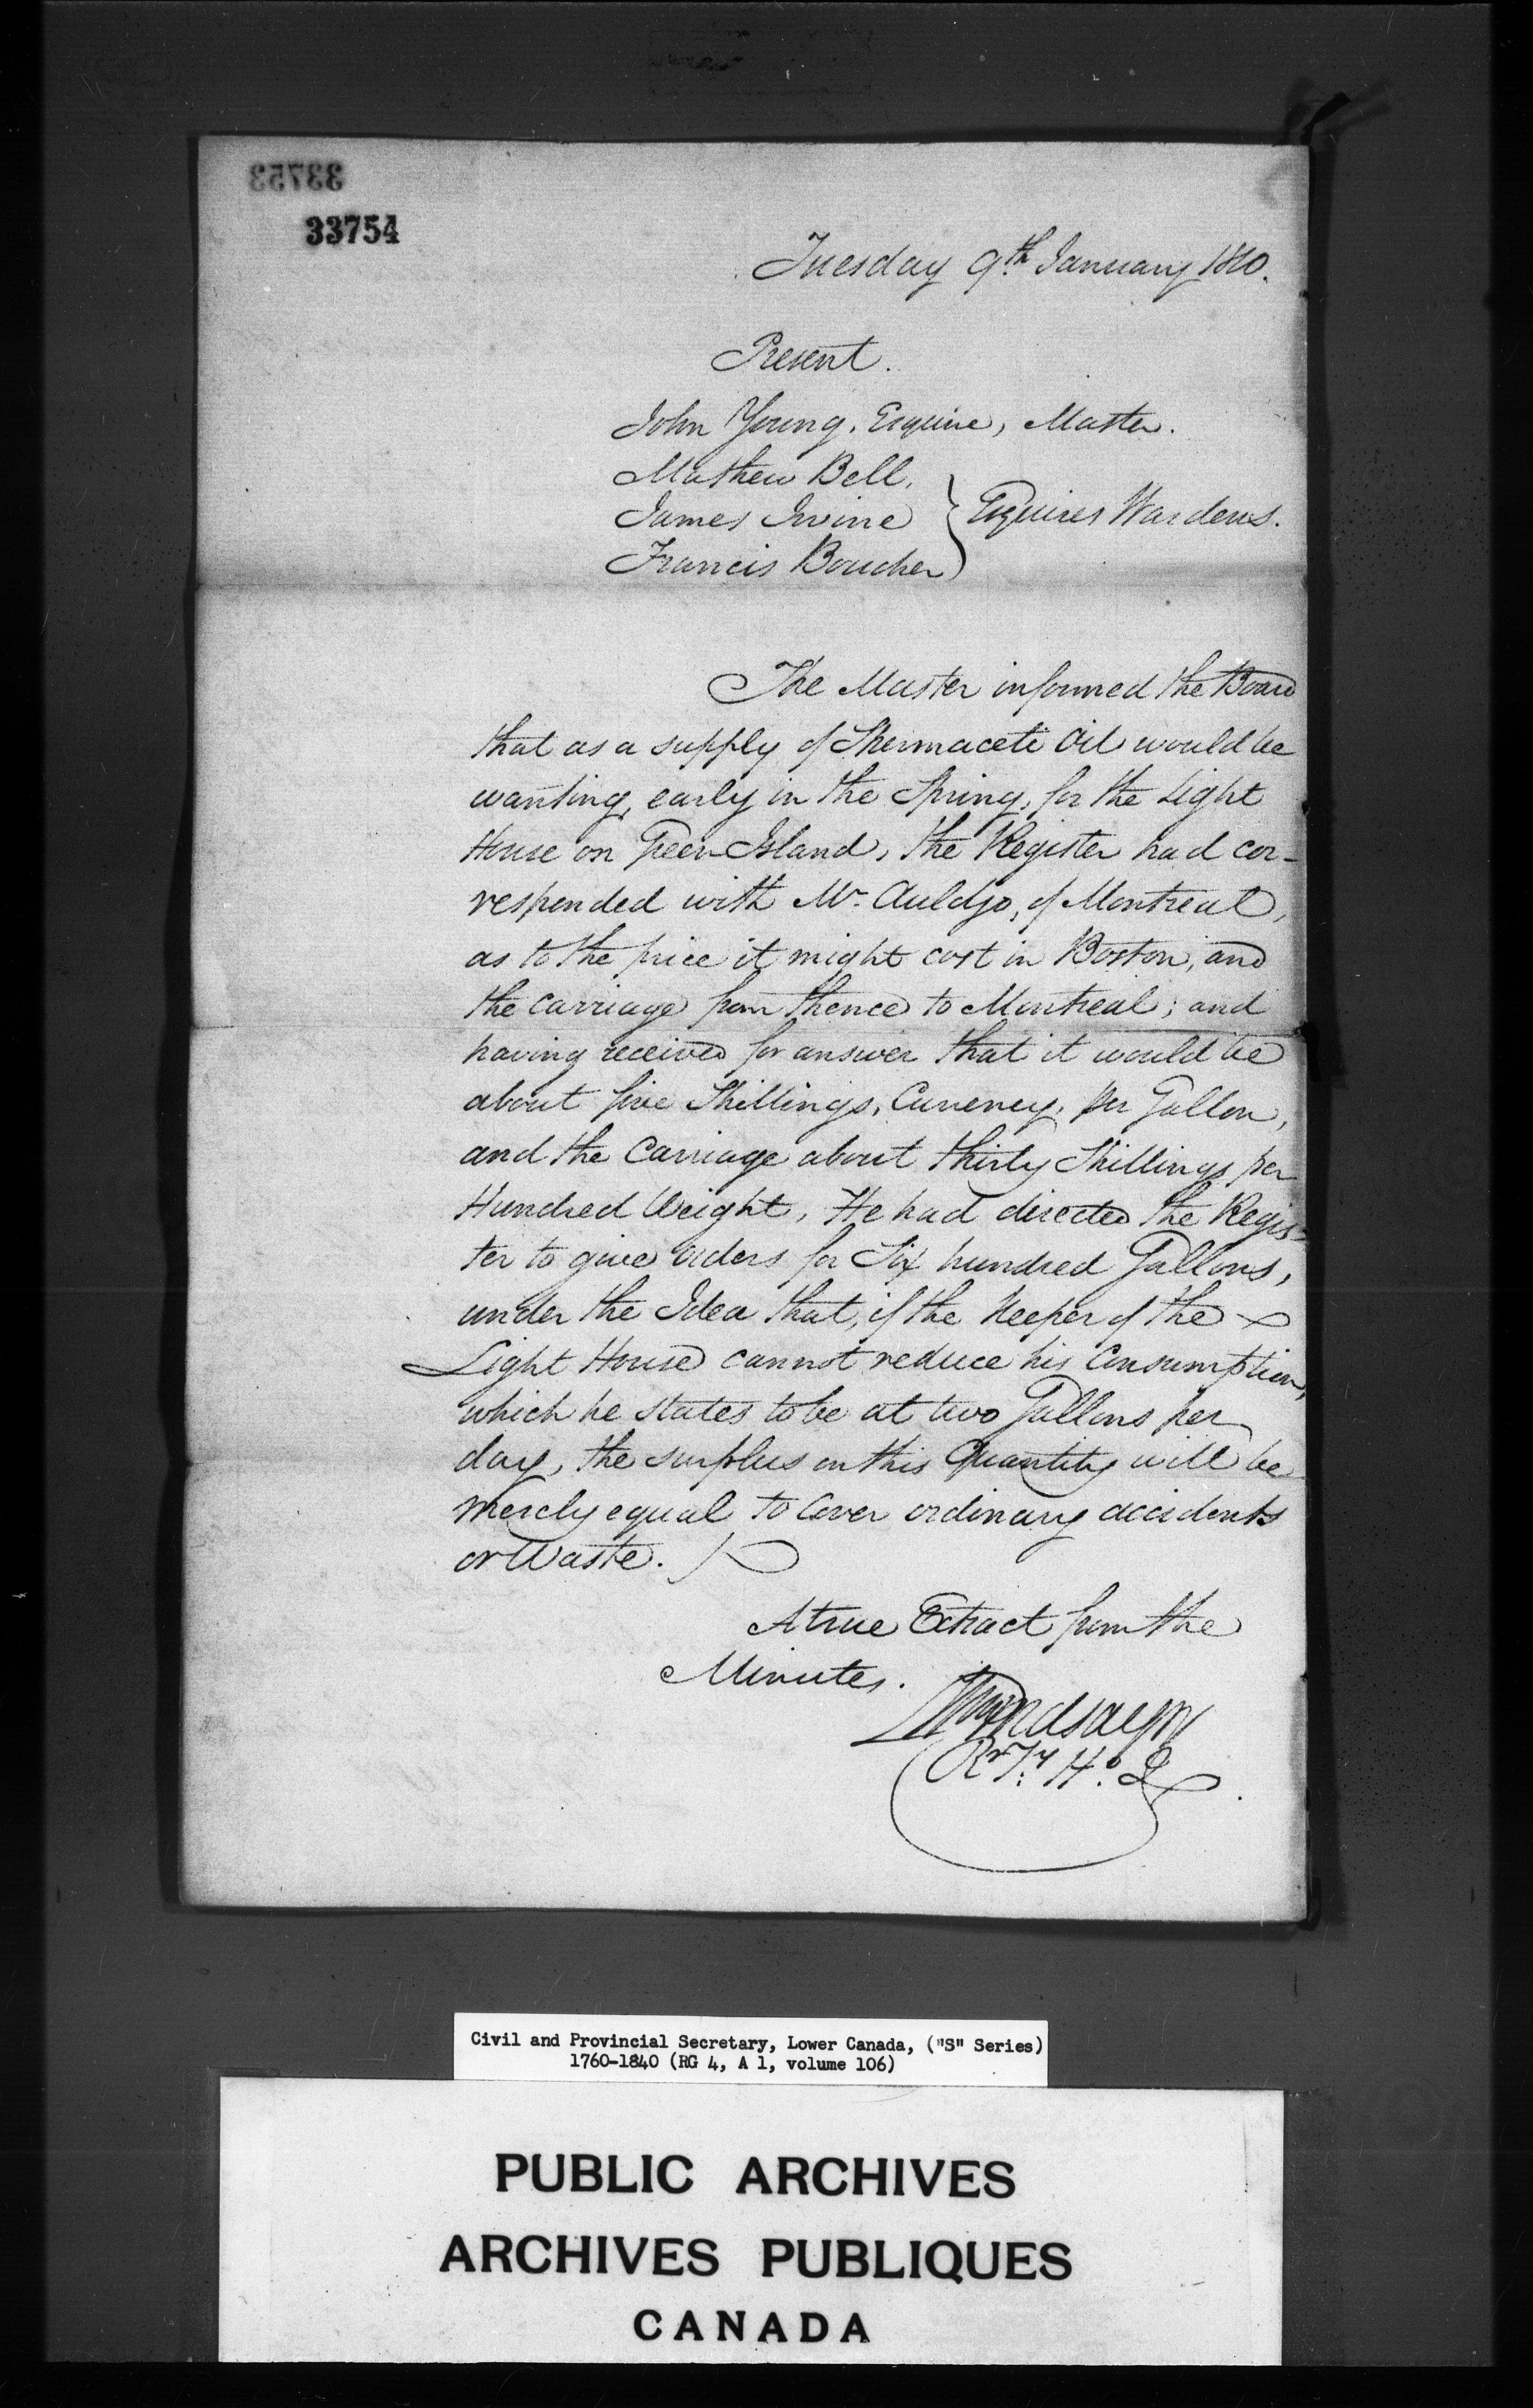 33753
33754
Tuesday 9th January 1810.
Present.
John Young, Esquire, Master.
Mathew Bell,
James Irvine } Esquires Wardens.
Francis Boucher
The Master informed the Board
that as a supply of Spermaceti Oil would be
wanting, early in the Spring, for the Light
House on Green Island, the Register had cor-
responded with Mr. Auldjo, of Montreal,
as to the price it might cost in Boston, and
the carriage from thence to Montreal; and
having received for answer that it would be
about five Shillings, Currency, per Gallon,
and the Carriage about thirty Shillings per
Hundred Weight, He had directed the Regis-
ter to give orders for Six hundred Gallons,
under the Idea that, if the Keeper of the
Light House cannot reduce his Consumption,
which he states to be at two Gallons per
day, the surplus on this Quantity will be
merely equal to Cover ordinary accidents
or Waste.
A true Extract from the
Minutes.
Wm Lindsay Jr
Rr. Ty. Ho. Q
Civil and Provincial Secretary, Lower Canada, ("S" Series)
1760-1840 (RG 4, A 1, volume 106)
PUBLIC ARCHIVES
ARCHIVES PUBLIQUES
CANADA